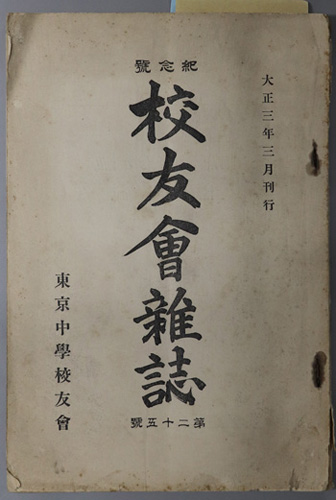 大正三年三月刊行
紀念號
校友會雜誌
第二十五號
東京中學校友會